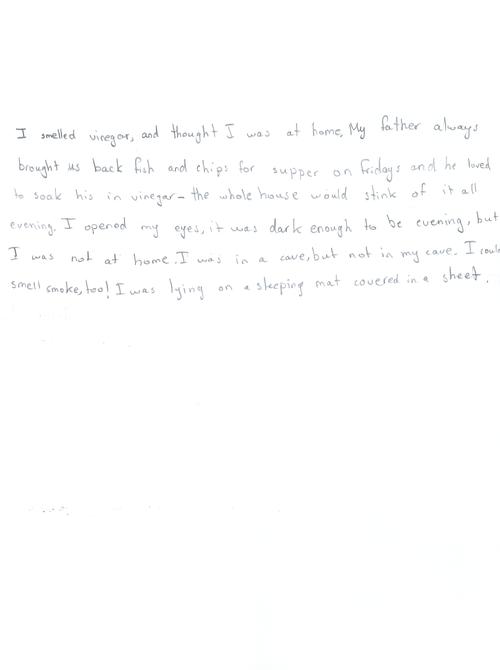 I smelled vinegar, and thought I was at home, My father always
brought us back fish and chips for supper on fridays and he loved
to soak his in vinegar - the whole house would stink of it all
evening. I opened my eyes, it was dark enough to be evening, but
I was not at home. I was in a cave, but not in my cave. I could
smell smoke, too! I was lying on a sleeping mat covered in a sheet.